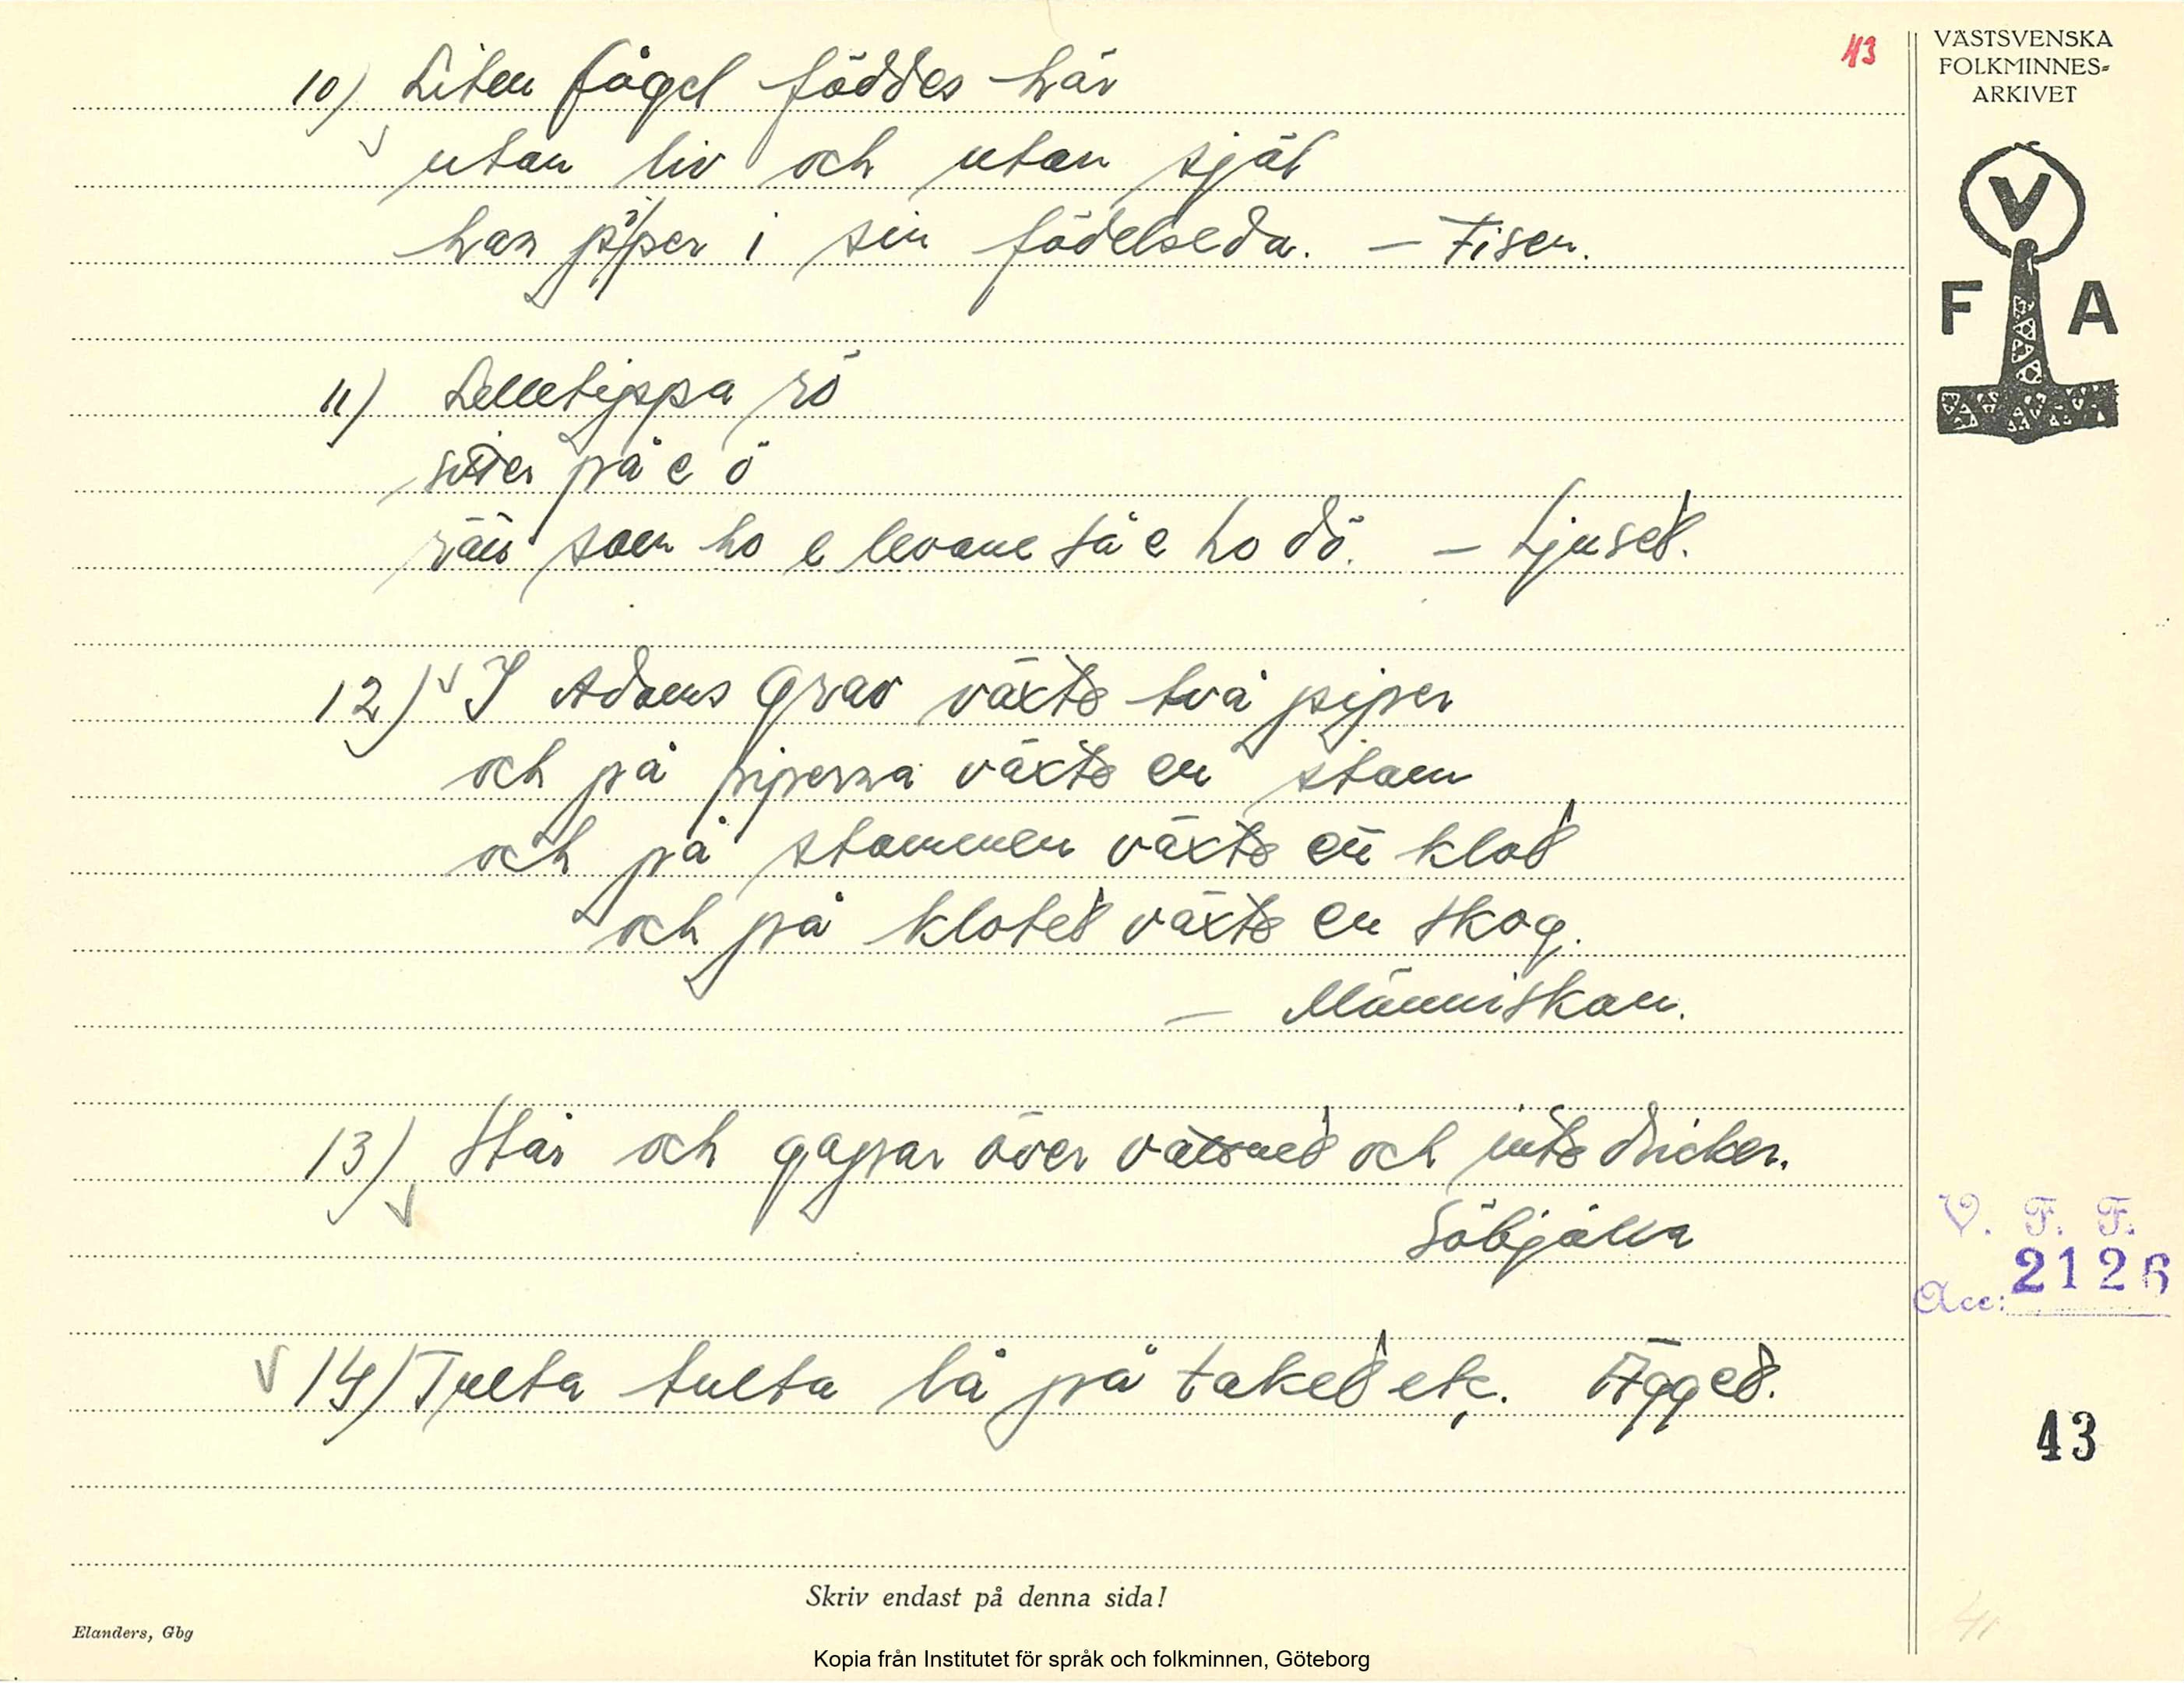 43
VÄSTSVENSKA
FOLKMINNES-
ARKIVET
V
F A
10) Liten fågel föddes här
utan liv och utan själ
han piper i sin födelseda. – Fisen.
11) Lelletippa rö
sitter på e ö
räis som ho e levane så e ho dö. – Ljuset.
12) I Adams grav växte två piper
och på piperna växte en stam
och på stammen växte ett klot
och på klotet växte en skog.
– Människan.
13) Står och gapar över vattnet och inte dricker.
Söbjälla
14) Tulta tulta lå på taket etc. Ägget.
V. F. F.
Acc: 2126
43
41
Skriv endast på denna sida!
Elanders, Gbg
Kopia från Institutet för språk och folkminnen, Göteborg